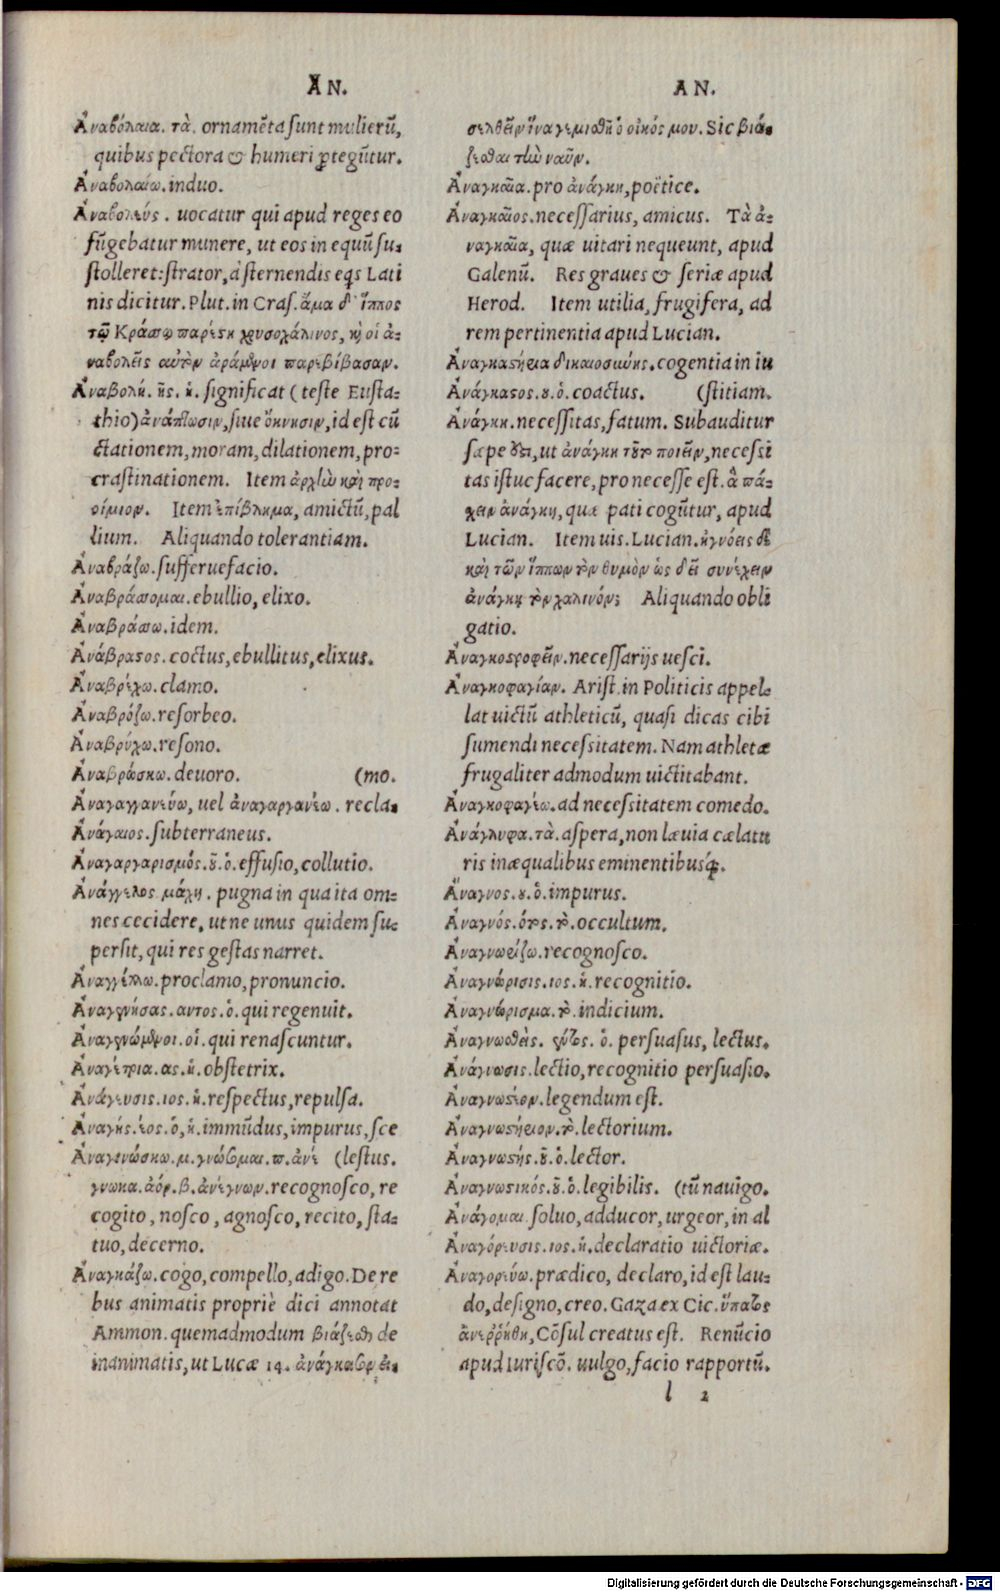 ἈN.
Ἀναβόλαια. τὰ. ornamēta sunt mulierū,
quibus pectora & humeri ꝓtegūtur.
Ἀναβολαίω. induo.
Ἀναβολεύς. uocatur qui apud reges eo
fūgebatur munere, ut eos in equū su-
stolleret: strator, à sternendis eqs Lati
nis dicitur. Plut. in Cras. ἅμα δ' ἵππος
τῷ Κράσσῳ παρέστη χρυσοχάλινος, καὶ οἱ ἀ-
ναβολεῖς αὐτὸν ἀράμενοι παρεβίβασαν.
Ἀναβολή. ῆς. ἡ. significat (teste Eusta-
thio) ἀνάπτωσιν, siue ὄκνησιν, id est cū
ctationem, moram, dilationem, pro-
crastinationem. Item ἀρχὴν καὶ προ-
οίμιον. Item ἐπίβλημα, amictū, pal
lium. Aliquando tolerantiam.
Ἀναβράζω. sufferuefacio.
Ἀναβράσσομαι. ebullio, elixo.
Ἀναβράσσω. idem.
Ἀνάβραστος. coctus, ebullitus, elixus.
Ἀναβρέχω. clamo.
Ἀναβρόζω. resorbeo.
Ἀναβρύχω. resono.
Ἀναβρώσκω. deuoro. (mo.
Ἀναγαγγανεύω, uel ἀναγαργανέω. recla-
Ἀνάγαιος. subterraneus.
Ἀναγαργαρισμός. οῦ. ὁ. effusio, collutio.
Ἀνάγγελος μάχη. pugna in qua ita om-
nes cecidere, ut ne unus quidem su-
persit, qui res gestas narret.
Ἀναγγέλλω. proclamo, pronuncio.
Ἀναγεννήσας. αντος. ὁ. qui regenuit.
Ἀναγεννώμενοι. οἱ. qui renascuntur.
Ἀναγέτρια. ας. ἡ. obstetrix.
Ἀνάγευσις. ιος. ἡ. respectus, repulsa.
Ἀναγής. έος. ὁ, ἡ. immūdus, impurus, sce
Ἀναγινώσκω. μ. γνώσομαι. π. ἀνέ (lestus.
γνωκα. ἀόρ. β. ἀνέγνων. recognosco, re
cogito, nosco, agnosco, recito, sta-
tuo, decerno.
Ἀναγκάζω. cogo, compello, adigo. De re
bus animatis propriè dici annotat
Ammon. quemadmodum βιάζεσθαι de
inanimatis, ut Lucæ 14. ἀνάγκασον εἰ-
AN.
σελθεῖν ἵνα γεμισθῇ ὁ οἶκός μου. Sic βιά-
ζεσθαι τὴν ναῦν.
Ἀναγκαῖα. pro ἀνάγκη, poëtice.
Ἀναγκαῖος. necessarius, amicus. Τὰ ἀ-
ναγκαῖα, quæ uitari nequeunt, apud
Galenū. Res graues & seriæ apud
Herod. Item utilia, frugifera, ad
rem pertinentia apud Lucian.
Ἀναγκαστήρια δικαιοσύνης. cogentia in iu
Ἀνάγκαστος. ου. ὁ. coactus. (stitiam.
Ἀνάγκη. necessitas, fatum. Subauditur
sæpe ἐστι, ut ἀνάγκη τοῦτο ποιεῖν, necessi
tas istuc facere, pro necesse est. ἃ πά-
χειν ἀνάγκη, quæ pati cogūtur, apud
Lucian. Item uis. Lucian. ἠγνόεις δὲ
καὶ τῶν ἵππων τὸν θυμὸν ὡς δεῖ συνέχειν
ἀνάγκῃ τὸν χαλινόν; Aliquando obli
gatio.
Ἀναγκοστροφεῖν. necessarijs uesci.
Ἀναγκοφαγίαν. Arist. in Politicis appel-
lat uictū athleticū, quasi dicas cibi
sumendi necessitatem. Nam athletæ
frugaliter admodum uictitabant.
Ἀναγκοφαγέω. ad necessitatem comedo.
Ἀνάγλυφα. τὰ. aspera, non læuia cælatu
ris inæqualibus eminentibusq́;.
Ἄναγνος. ου. ὁ. impurus.
Ἀναγνός. ότος. τὸ. occultum.
Ἀναγνωρίζω. recognosco.
Ἀναγνώρισις. ιος. ἡ. recognitio.
Ἀναγνώρισμα. τὸ. indicium.
Ἀναγνωσθείς. έντος. ὁ. persuasus, lectus.
Ἀνάγνωσις. lectio, recognitio persuasio.
Ἀναγνωστέον. legendum est.
Ἀναγνωστήριον. τὸ. lectorium.
Ἀναγνωστής. οῦ. ὁ. lector.
Ἀναγνωστικός. οῦ. ὁ. legibilis. (tū nauigo.
Ἀνάγομαι soluo, adducor, urgeor, in al
Ἀναγόρευσις. ιος. ἡ. declaratio uictoriæ.
Ἀναγορεύω. prædico, declaro, id est lau-
do, designo, creo. Gaza ex Cic. ὕπατος
ἀνεῤῥήθη, Cōsul creatus est. Renūcio
apud Iuriscō. uulgo, facio rapportū.
l 2
Digitalisierung gefördert durch die Deutsche Forschungsgemeinschaft - DFG